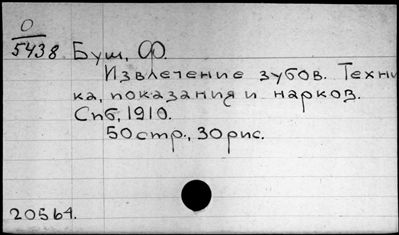 О
5438 Буш, Ф.
Извлечение зубов. Техни
ка, показания и наркоз.
Спб, 1910.
50стр., 30рис.
20564.